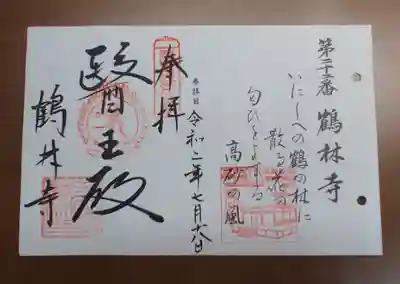 第二十番 鶴林寺
いにしへの鶴の林に
散る花の
匂ひをよする
高砂の風
参拝日 令和二年七月十八日
奉拝
醫王殿
鶴林寺